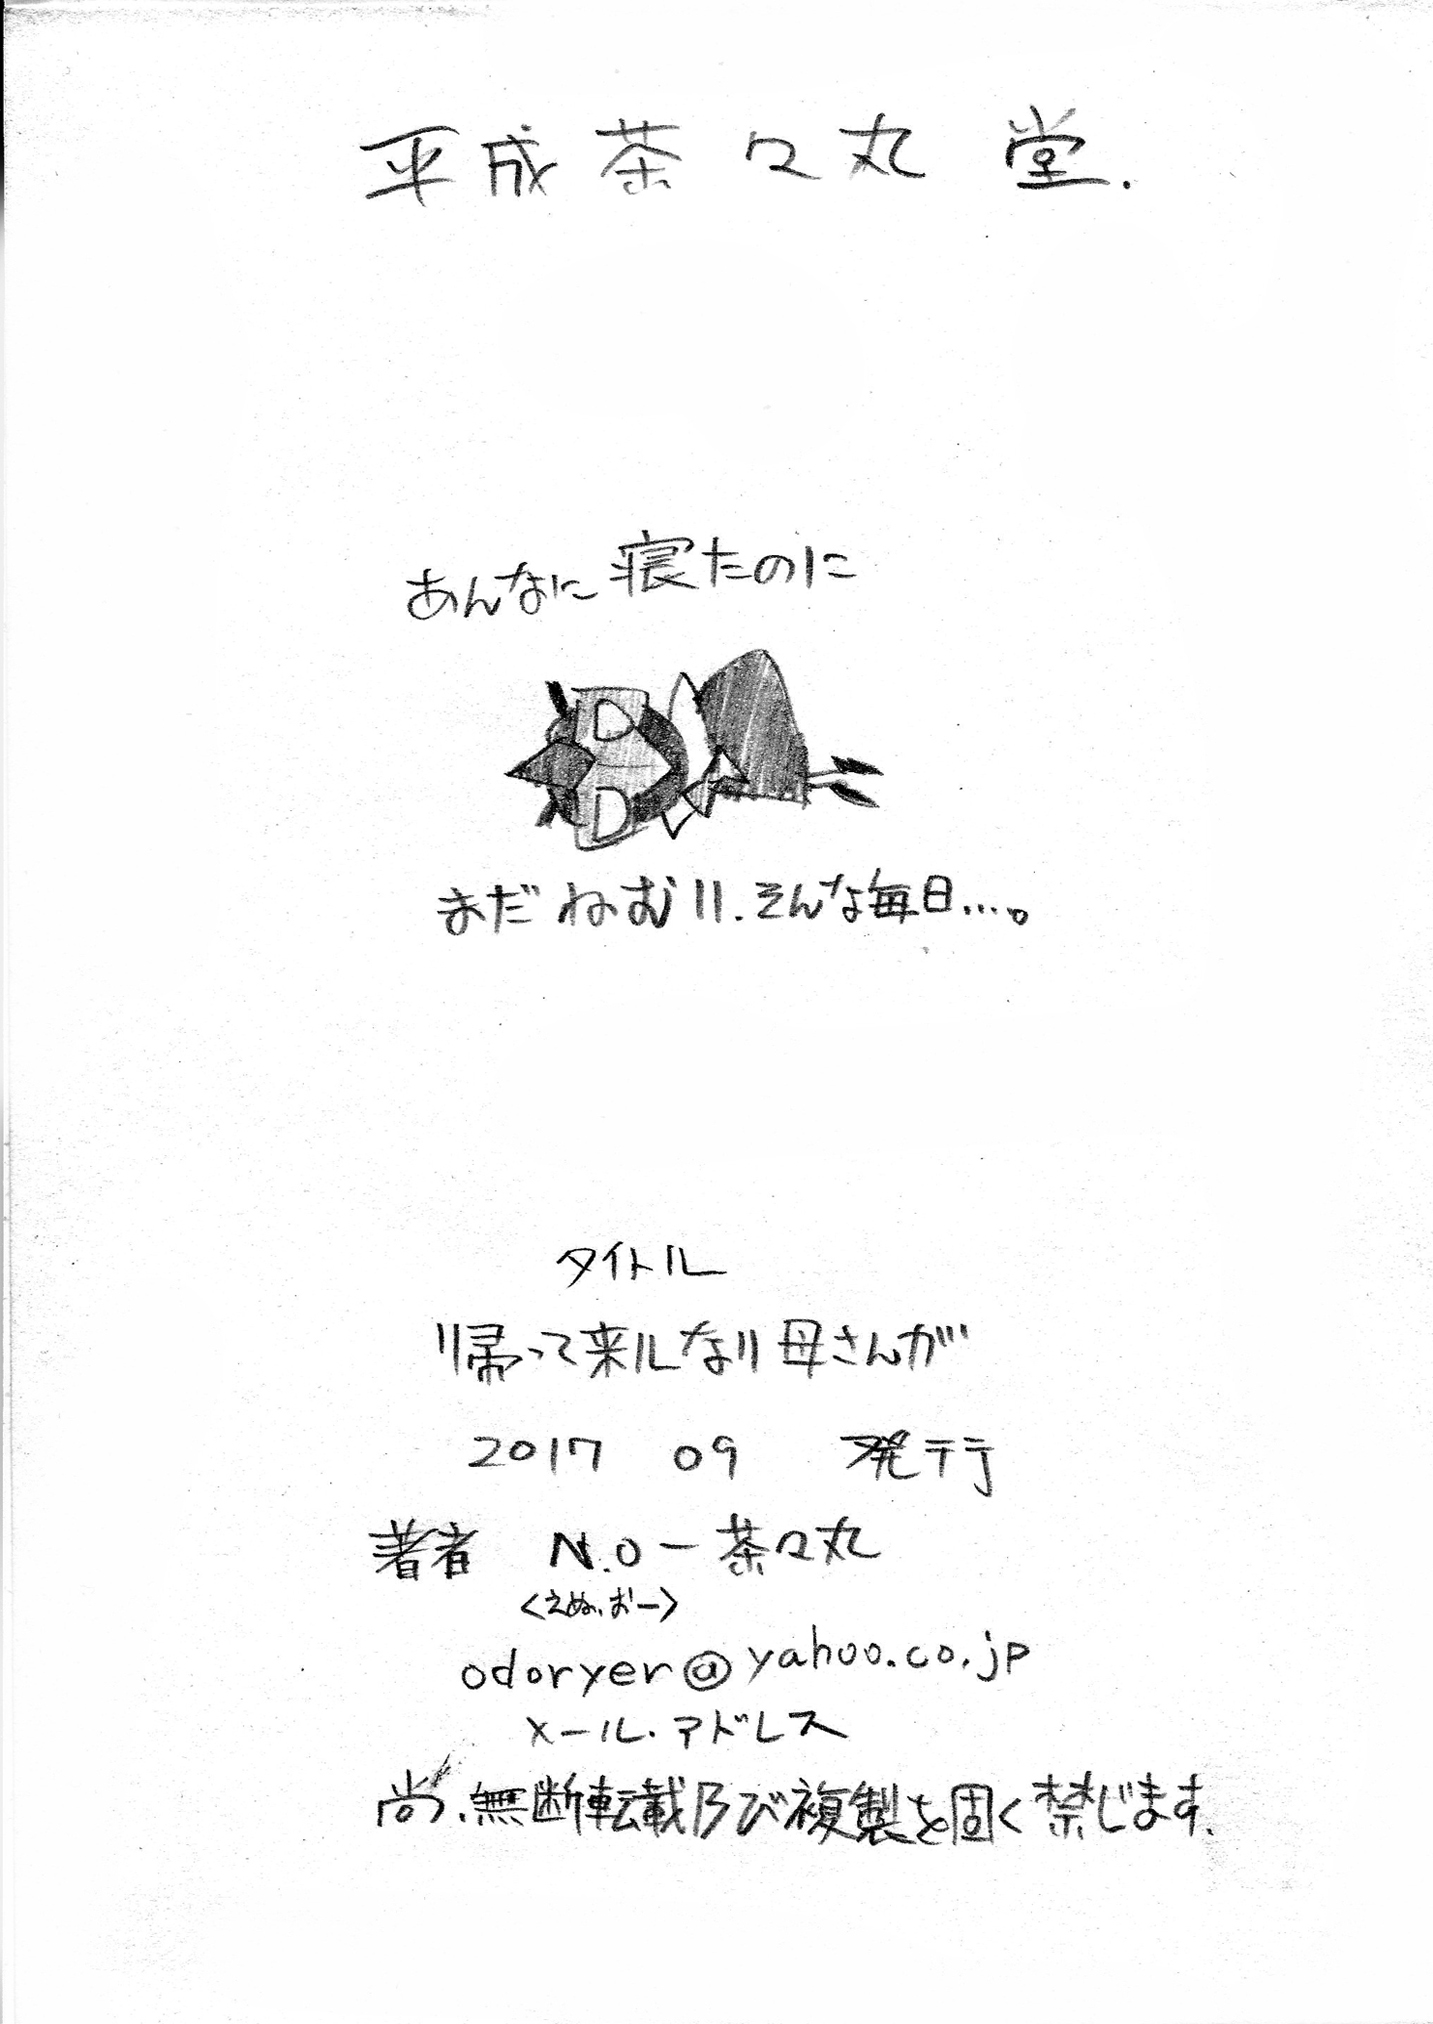 平成茶々丸堂.
あんなに寝たのに
まだねむい.そんな毎日…。
タイトル
帰って来ルない母さんが
2017 09 発行
著者 N.O-茶々丸
<えぬ、おー>
odoryer@yahoo.co.jp
メール.アドレス
尚、無断転載及び複製を固く禁じます.